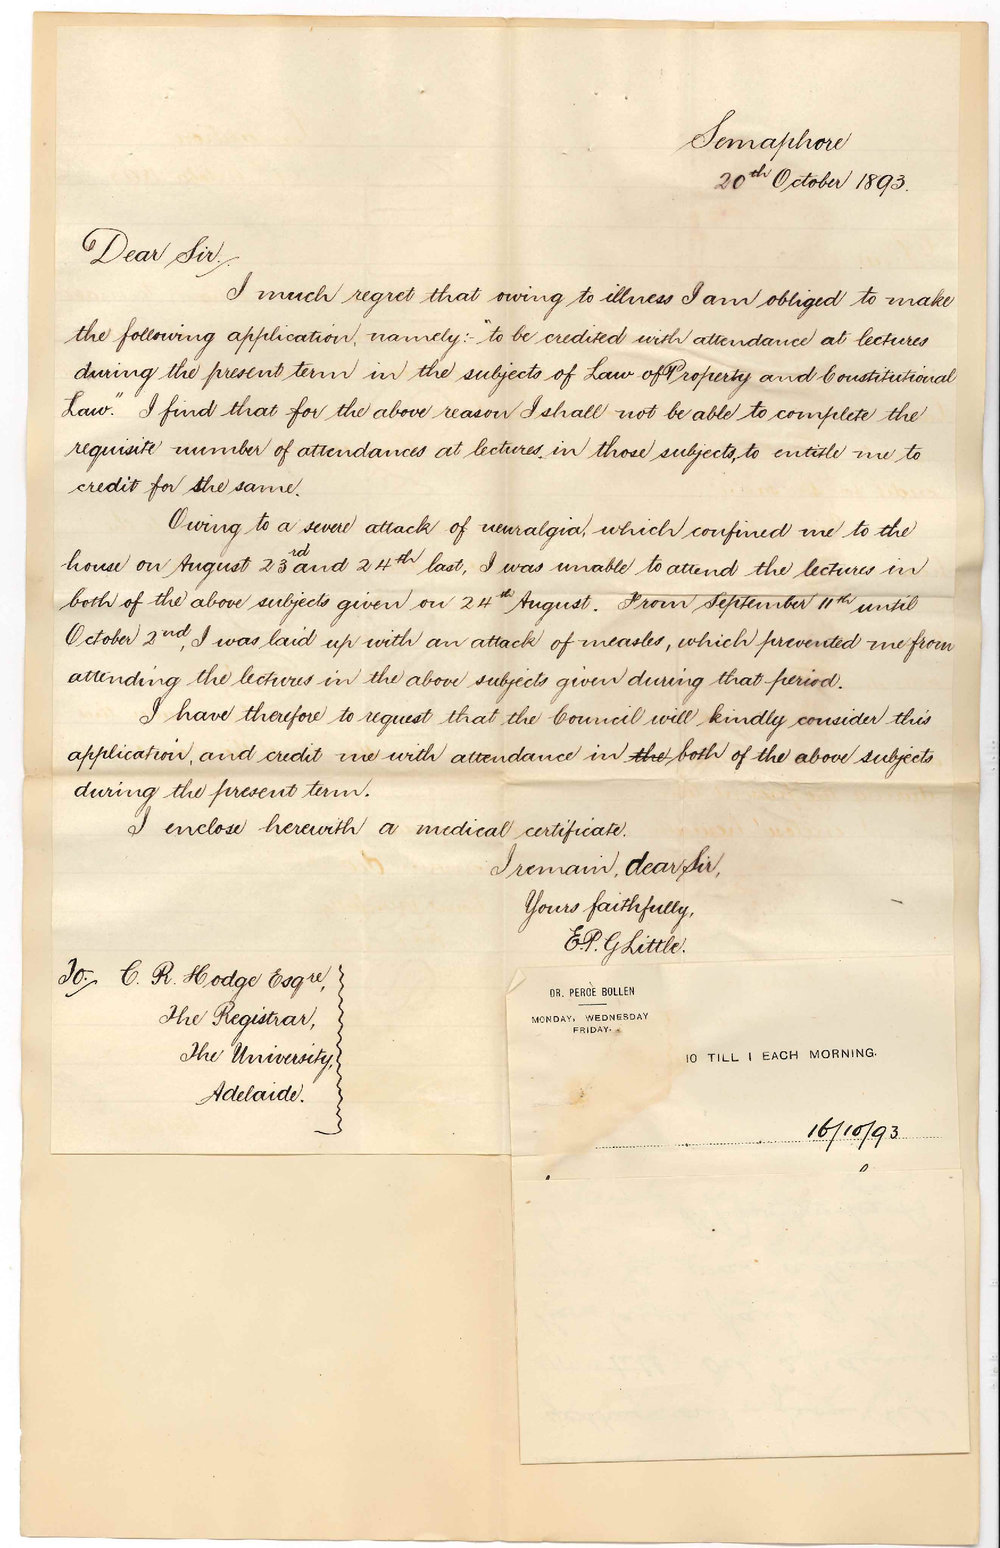 Semaphore
20th October 1893.
Dear Sir.
I much regret that owing to illness I am obliged to make
the following application, namely:- "to be credited with attendance at lectures
during the present term in the subjects of Law of Property and Constitutional
Law." I find that for the above reason I shall not be able to complete the
requisite number of attendances at lectures, in those subjects, to entitle me to
credit for the same.
Owing to a severe attack of neuralgia, which confined me to the
house on August 23rd and 24th last, I was unable to attend the lectures in
both of the above subjects given on 24th August. From September 11th until
October 2nd, I was laid up with an attack of measles, which prevented me from
attending the lectures in the above subjects given during that period.
I have therefore to request that the Council will kindly consider this
application, and credit me with attendance in the both of the above subjects
during the present term.
I enclose herewith a medical certificate.
I remain, dear Sir,
Yours faithfully,
E.P. G Little.
To:- C. R. Hodge Esqre,
The Registrar,
The University,
Adelaide.
DR. PERCÈ BOLLEN
MONDAY, WEDNESDAY
FRIDAY.
10 TILL 1 EACH MORNING.
16/10/93